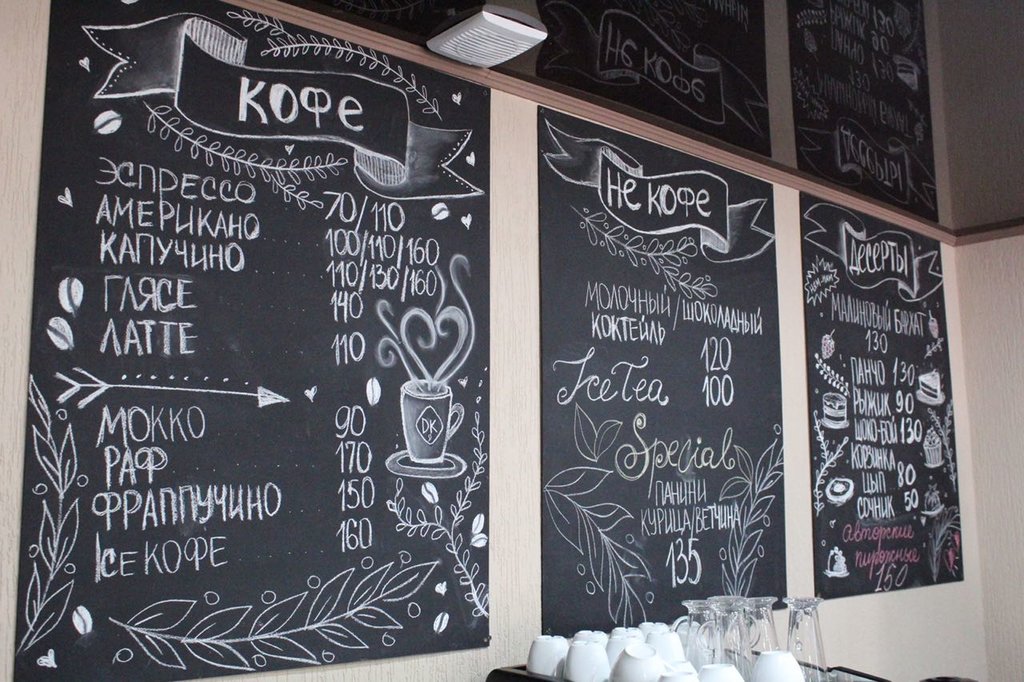 КОФЕ
ЭСПРЕССО 70/110
АМЕРИКАНО 100/110/160
КАПУЧИНО 110/130/160
ГЛЯСЕ 140
ЛАТТЕ 110
МОККО 90
РАФ 170
ФРАППУЧИНО 150
Ice КОФЕ 160
DK
НЕ КОФЕ
МОЛОЧНЫЙ/ШОКОЛАДНЫЙ
КОКТЕЙЛЬ 120
Ice Tea 100
Special
ПАНИНИ
КУРИЦА/ВЕТЧИНА
135
ДЕСЕРТЫ
МАЛИНОВЫЙ БАРХАТ
130
ПАНЧО 130
РЫЖИК 90
ШОКО-БОЙ 130
КОРЗИНКА
ЦЫП 80
СОЧНИК 50
Авторские
пирожные
150